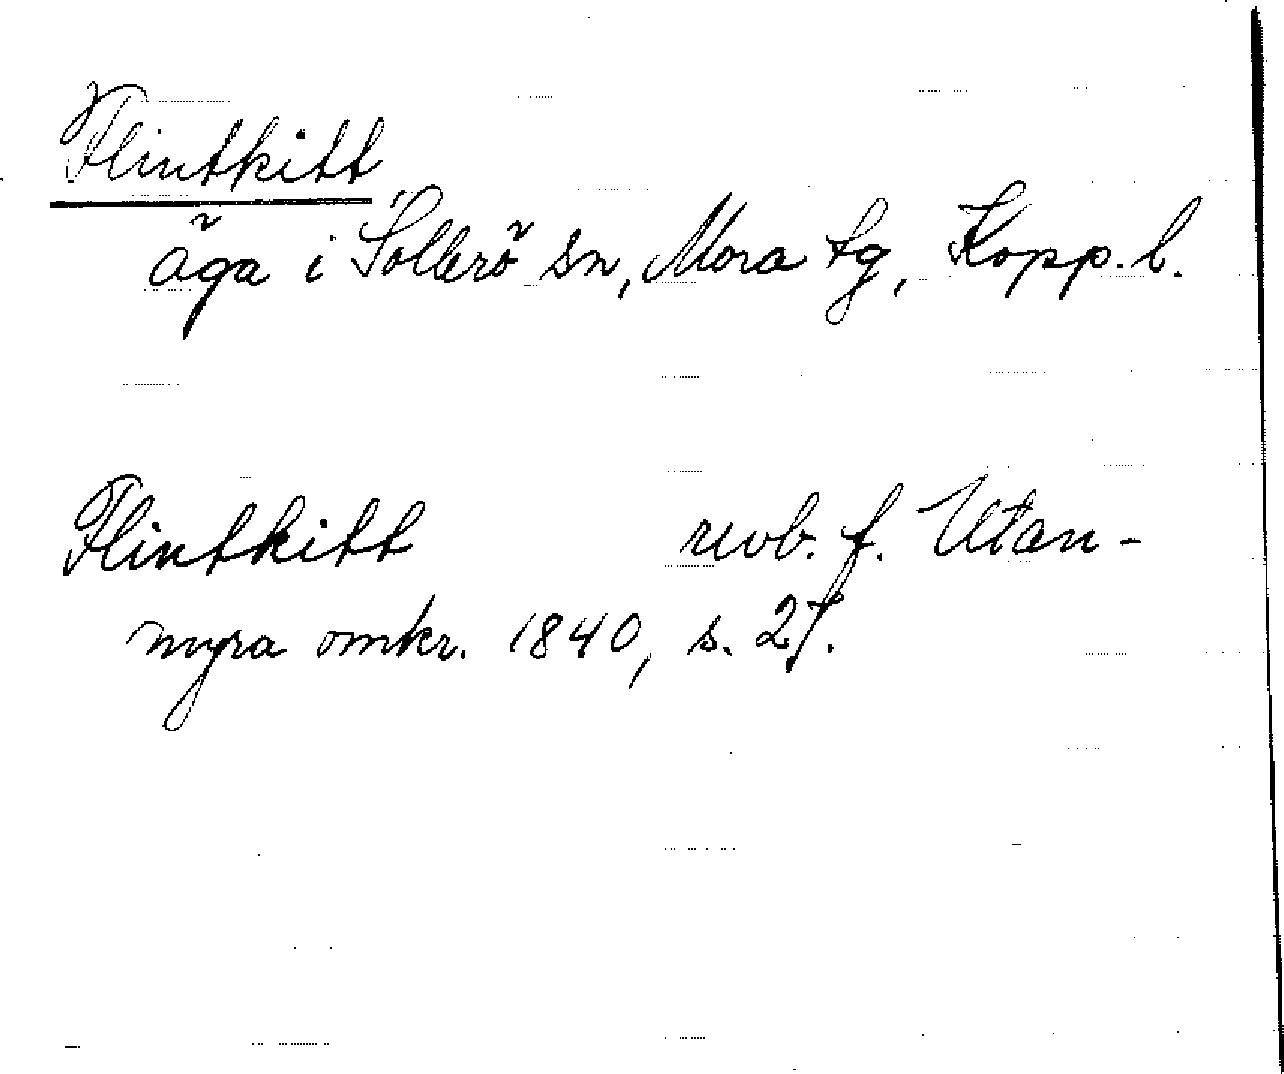 Flintkitt
äga i Sollerö sn, Mora tg, Kopp. l.
Flintkitt revb. f. Utan-
myra omkr. 1840, s. 27.